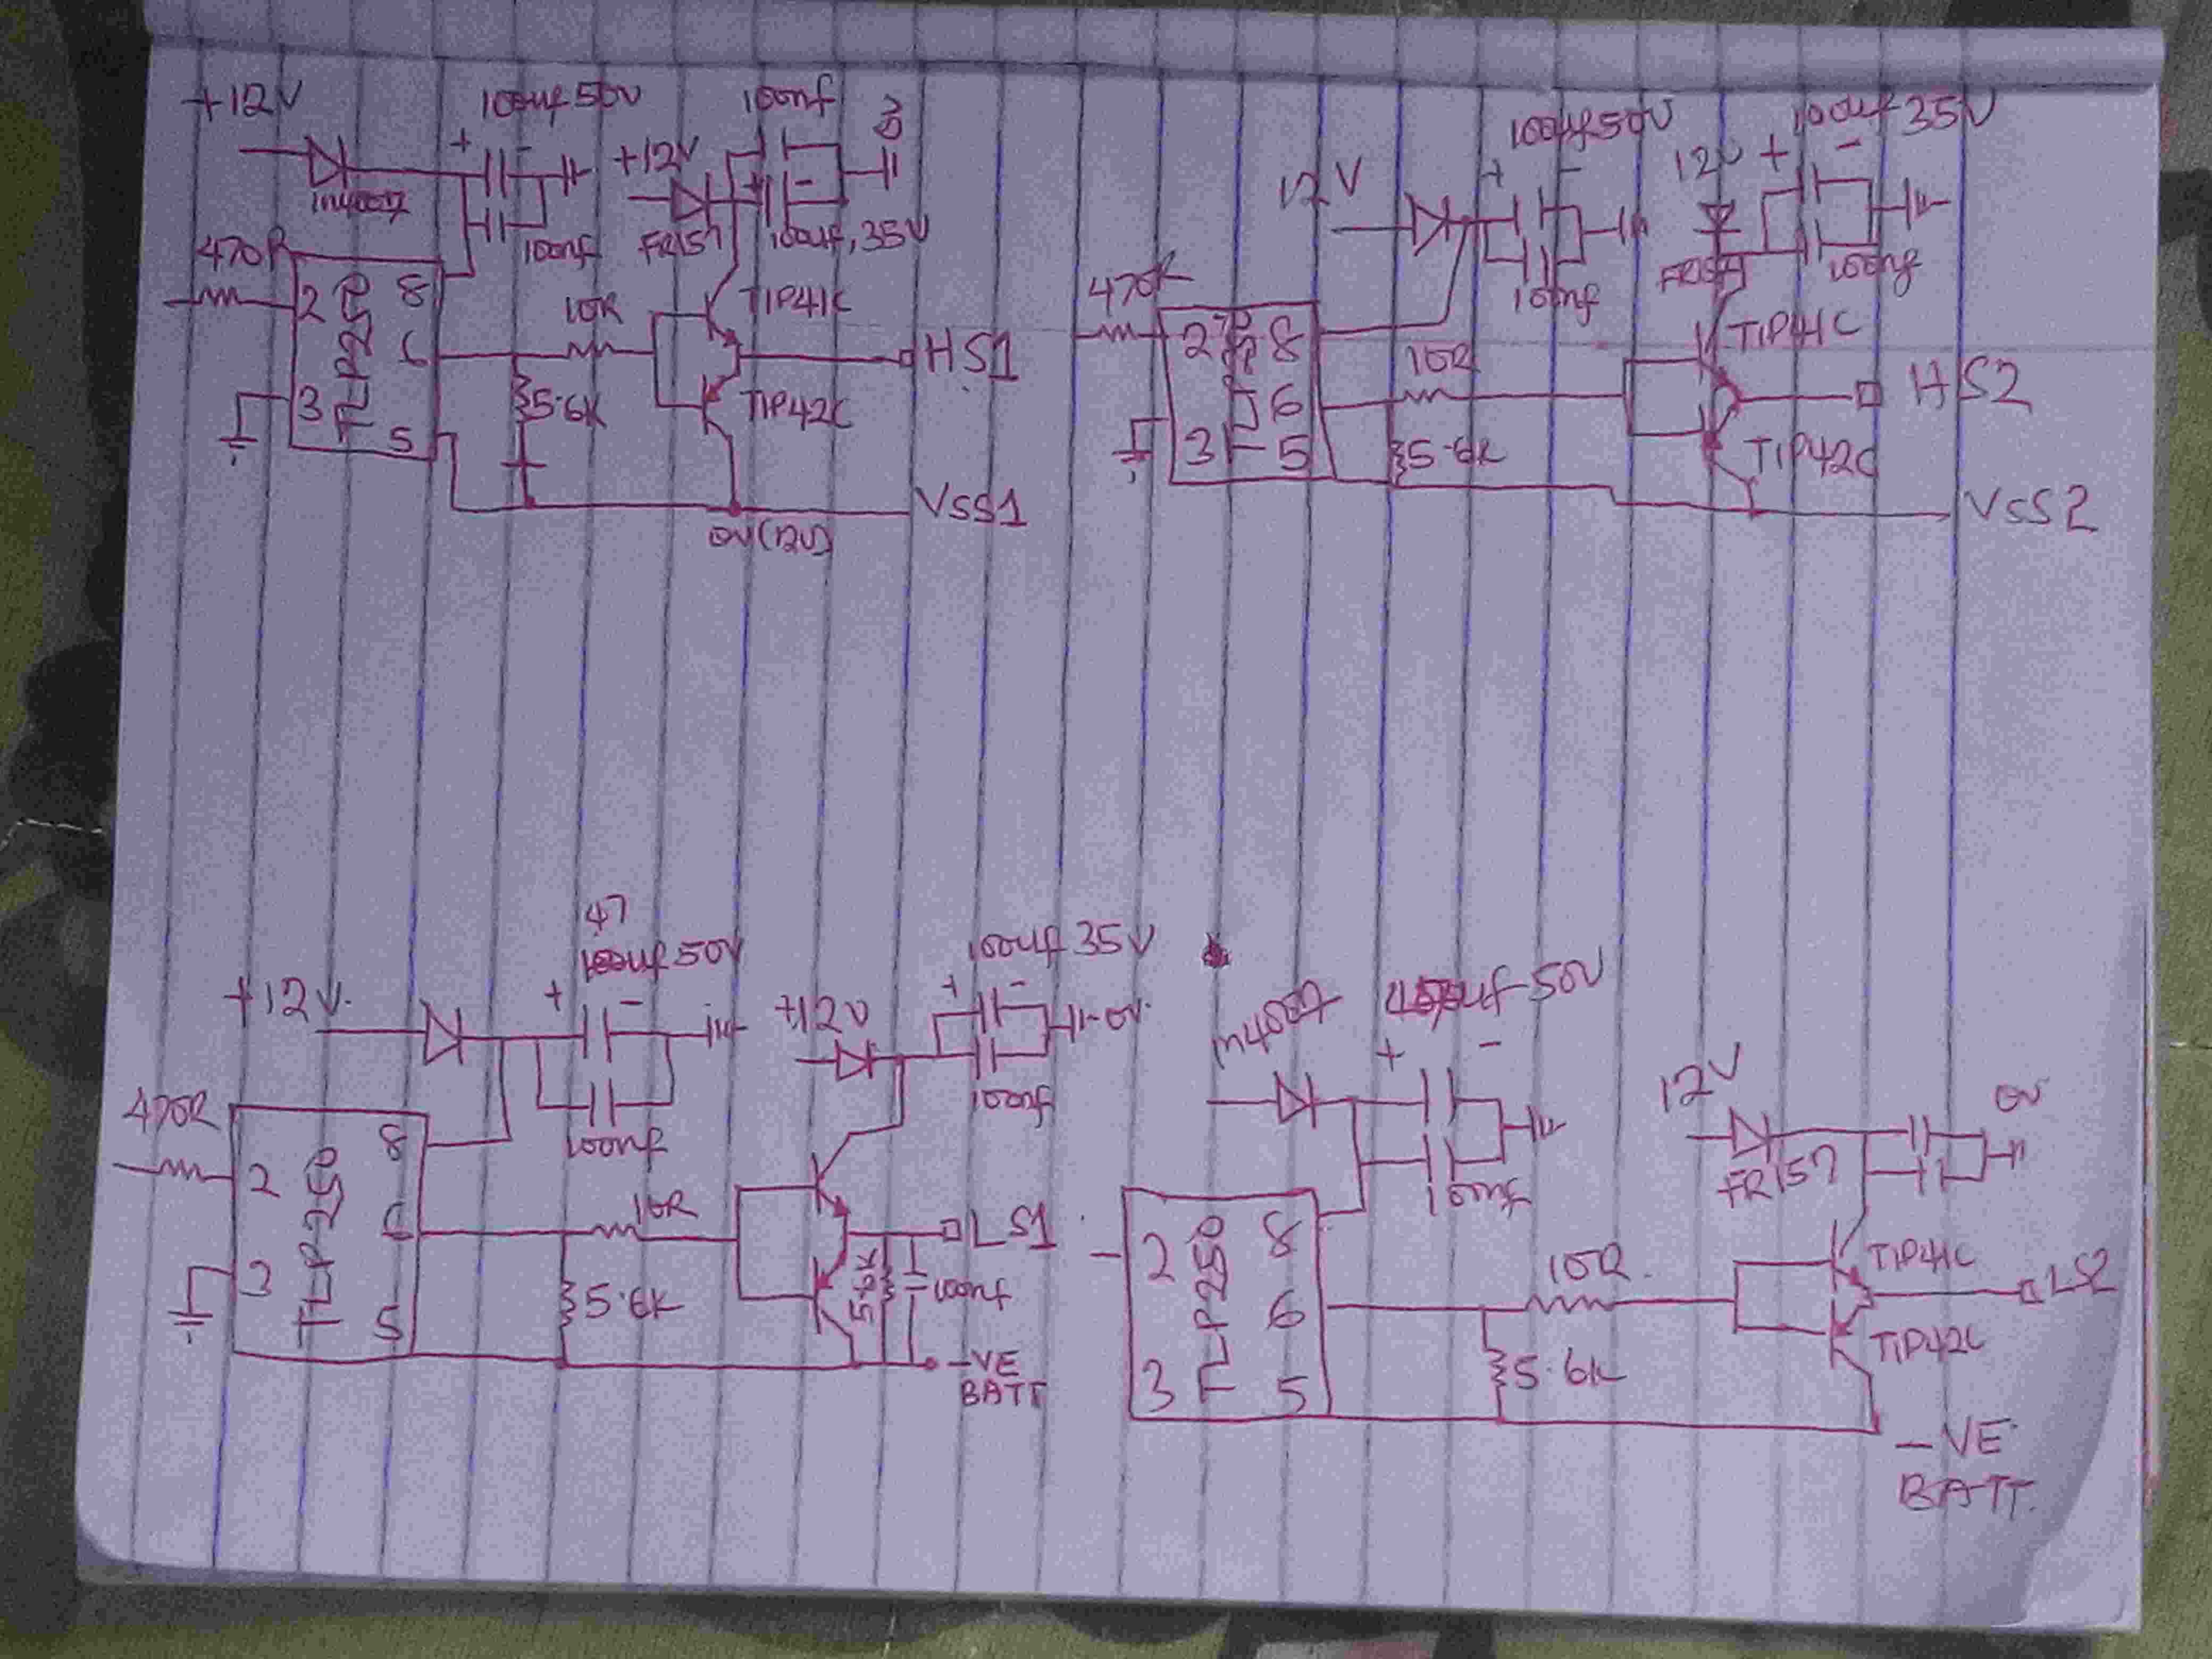 +12V
100uf 50V
100nf
0V
+
-
+12V
1n4007
100nf
FR157
100uf, 35V
470R
2
8
TLP250
6
3
5
10R
5.6K
TIP41C
TIP42C
HS1
VSS1
0V(12V)
12V
100uf 50V
+
-
100nf
12V
+
-
100uf 35V
FR157
100nf
470R
2
8
6
3
5
10R
5.6K
TIP41C
TIP42C
HS2
VSS2
+12V.
47
100uf 50V
+
-
100nf
+12V
100uf 35V
+
-
0V.
100nf
470R
2
8
TLP250
6
3
5
10R
5.6K
5.6K
100nf
LS1
-VE
BATT
1n4007
uf 50V
+
-
100nf
12V
FR157
0V
2
8
TLP250
6
3
5
10R.
5.6K
TIP41C
TIP42C
LS2
-VE
BATT.